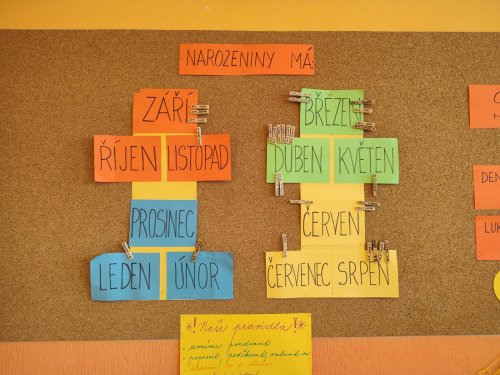 NAROZENINY MÁ:
ZÁŘÍ
ŘÍJEN
LISTOPAD
PROSINEC
LEDEN
ÚNOR
BŘEZEN
DUBEN
KVĚTEN
ČERVEN
ČERVENEC
SRPEN
DEN
LUK
! Naše pravidla !
umíme pozdravit
poprosit, poděkovat,